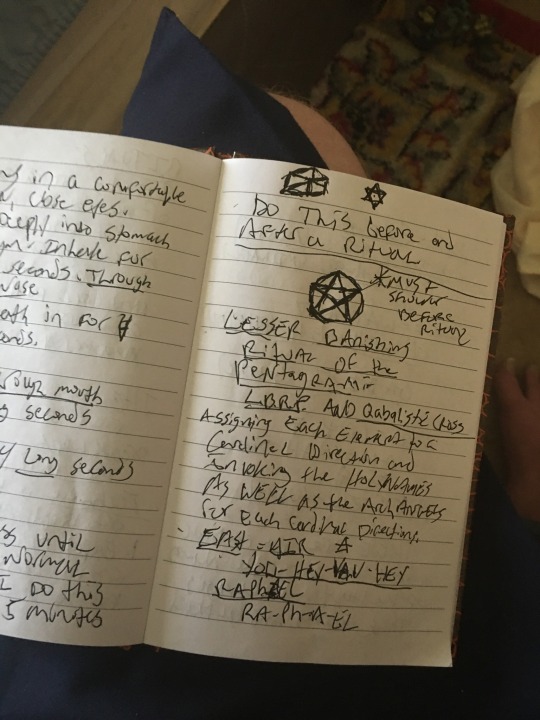 in a comfortable
close eyes.
into stomach
Inhale for
seconds. Through
in for 4
mouth
seconds
Long seconds
until
Normal
Do this
5 minutes
Do This before and
After a Ritual
*Must
should
Before
Ritual
LESSER BANishing
Ritual of the
PENtAGRAM
LBRP AND Qabalistic Cross
Assigning Each Element to a
Cardinal Direction and
Invoking the Holy NAMES
As WELL As the ArchAngels
for Each Cardinal Direction.
EAST = AIR
YOD-HEY-VAV-HEY
RAPhAEL
RA-Ph-A-EL